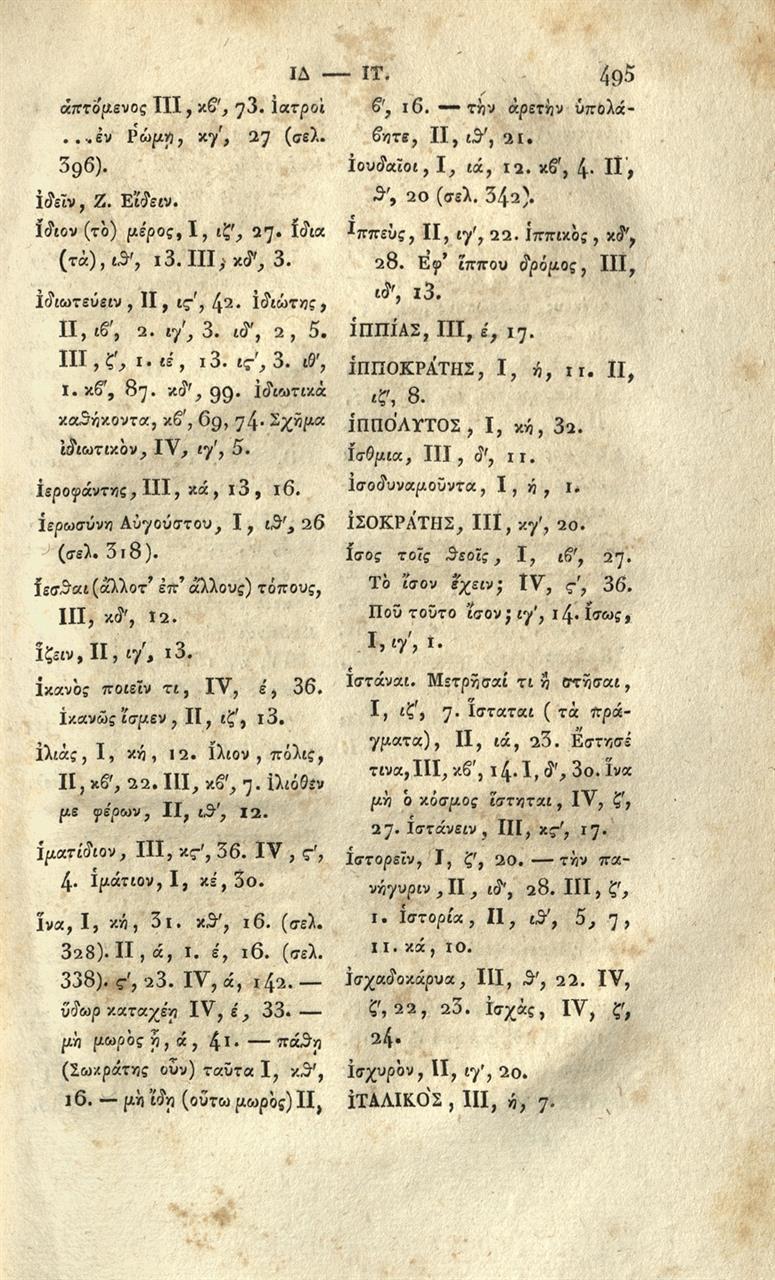 ΙΔ — ΙΤ. 495
ἁπτόμενος III, κβ', 73. Ἰατροὶ
...ἐν Ῥώμῃ, κγ', 27 (σελ.
396).
Ἰδεῖν, Ζ. Εἴδειν.
Ἴδιον (τὸ) μέρος, I, ιζ', 27. Ἴδια
(τὰ), ιθ', 13. III, κδ', 3.
Ἰδιωτεύειν, II, ις', 42. Ἰδιώτης,
II, ιβ', 2. ιγ', 3. ιδ', 2, 5.
III, ζ', 1. ιέ, 13. ις', 3. ιθ',
1. κβ', 87. κδ', 99. Ἰδιωτικὰ
καθήκοντα, κβ', 69, 74. Σχῆμα
ἰδιωτικὸν, IV, ιγ', 5.
Ἱεροφάντης, III, κά, 13, 16.
Ἱερωσύνη Αὐγούστου, I, ιθ', 26
(σελ. 318).
Ἵεσθαι (ἄλλοτ' ἐπ' ἄλλους) τόπους,
III, κδ', 12.
Ἵζειν, II, ιγ', 13.
Ἱκανὸς ποιεῖν τι, IV, έ, 36.
Ἱκανῶς ἴσμεν, II, ιζ', 13.
Ἰλιὰς, I, κή, 12. Ἴλιον, πόλις,
II, κβ', 22. III, κβ', 7. Ἰλιόθεν
με φέρων, II, ιθ', 12.
Ἱματίδιον, III, κς', 36. IV, ς',
4. Ἱμάτιον, I, κέ, 30.
Ἵνα, I, κή, 31. κθ', 16. (σελ.
328). II, ά, 1. έ, 16. (σελ.
338). ς', 23. IV, ά, 142. —
ὕδωρ καταχέῃ IV, έ, 33. —
μὴ μωρὸς ᾖ, ά, 41. — πάθῃ
(Σωκράτης οὖν) ταῦτα I, κθ',
16. — μὴ ἴδῃ (οὕτω μωρὸς) II,
β', 16. — τὴν ἀρετὴν ὑπολά-
βητε, II, ιθ', 21.
Ἰουδαῖοι, I, ιά, 12. κβ', 4. II,
θ', 20 (σελ. 342).
Ἱππεὺς, II, ιγ', 22. Ἱππικὸς, κδ',
28. Ἐφ' ἵππου δρόμος, III,
ιδ', 13.
ἹΠΠΊΑΣ, III, έ, 17.
ἹΠΠΟΚΡΆΤΗΣ, I, ή, 11. II,
ιζ', 8.
ἹΠΠΌΛΥΤΟΣ, I, κή, 32.
Ἴσθμια, III, δ', 11.
Ἰσοδυναμοῦντα, I, ή, 1.
ἸΣΟΚΡΆΤΗΣ, III, κγ', 20.
Ἴσος τοῖς θεοῖς, I, ιβ', 27.
Τὸ ἴσον ἔχειν; IV, ς', 36.
Ποῦ τοῦτο ἴσον; ιγ', 14. Ἴσως,
I, ιγ', 1.
Ἱστάναι. Μετρῆσαί τι ἢ στῆσαι,
I, ιζ', 7. Ἵσταται (τὰ πρά-
γματα), II, ιά, 23. Ἔστησέ
τινα, III, κβ', 14. I, δ', 30. Ἵνα
μὴ ὁ κόσμος ἵστηται, IV, ζ',
27. Ἱστάνειν, III, κς', 17.
Ἱστορεῖν, I, ζ', 20. — τὴν πα-
νήγυριν, II, ιδ', 28. III, ζ',
1. Ἱστορία, II, ιθ', 5, 7,
11. κά, 10.
Ἰσχαδοκάρυα, III, θ', 22. IV,
ζ', 22, 23. Ἰσχὰς, IV, ζ',
24.
Ἰσχυρὸν, II, ιγ', 20.
ἸΤΑΛΙΚῸΣ, III, ή, 7.